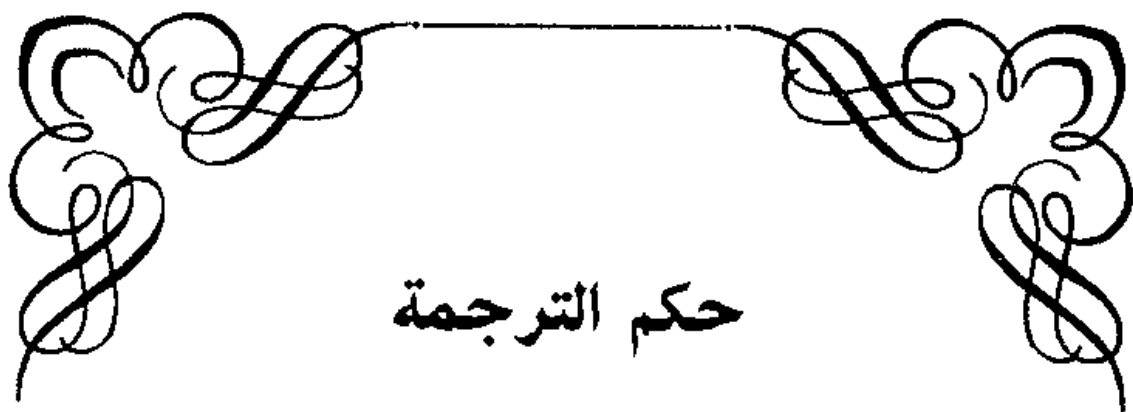 حكم الترجمة